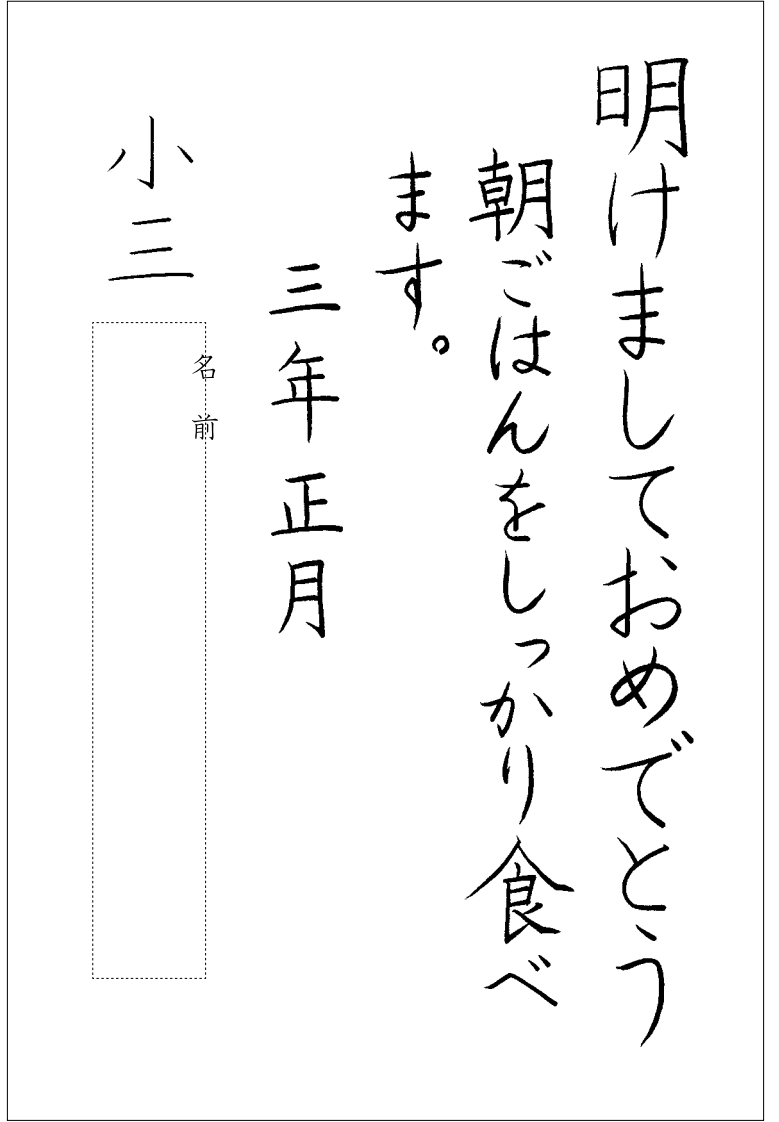 明けましておめでとう
朝ごはんをしっかり食べ
ます。
三年正月
小三
名前